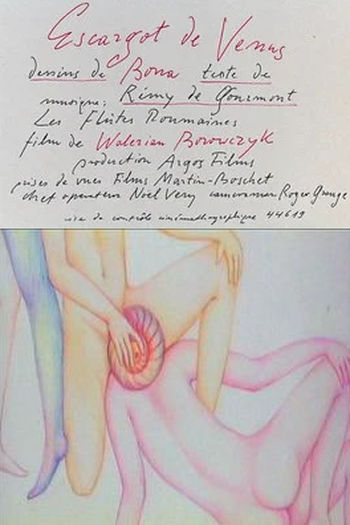 Escargot de Venus
dessins de Bona texte de
musique: Rémy de Gourmont
Les Flûtes Roumaines
film de Walerian Borowczyk
production Argos Films
prises de vues Films Martin-Boschet
chef operateur Noël Very cameraman Roger Grange
visa de contrôle cinématographique 44619